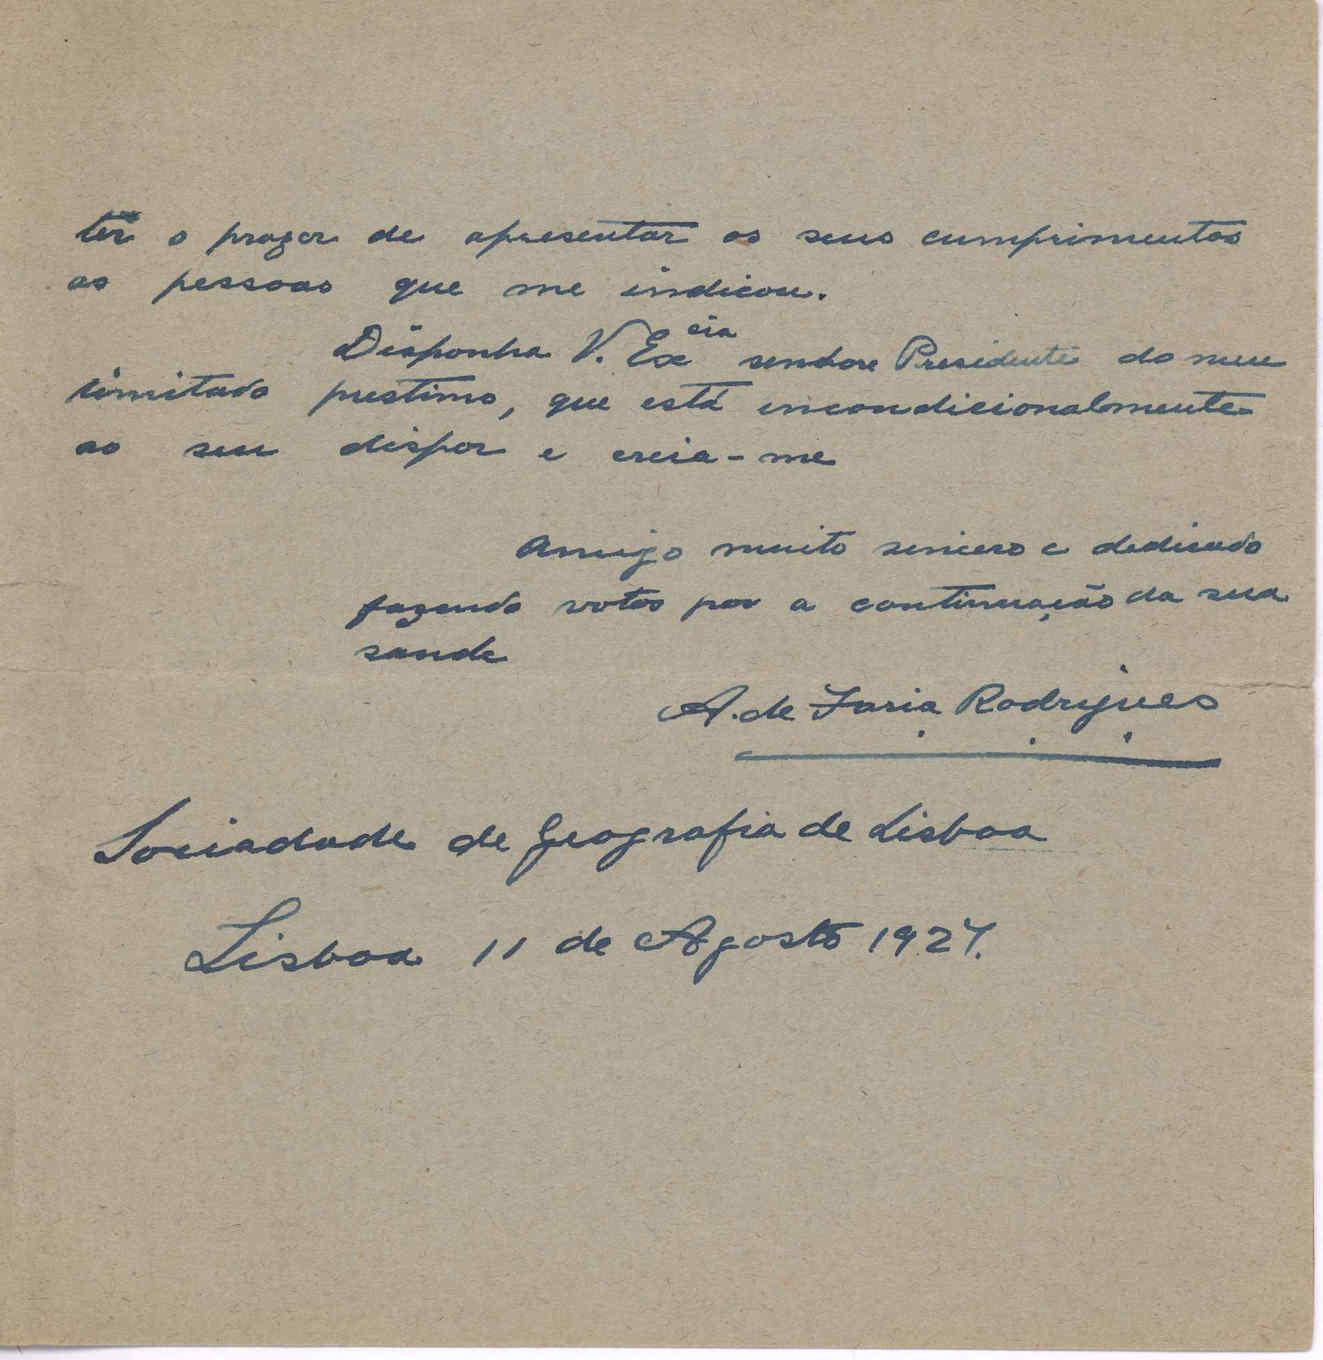 ter o prazer de apresentar os seus cumprimentos
as pessoas que me indicou.
Disponha V. Ex cia senhor Presidente do meu
limitado prestimo, que está incondicionalmente
ao seu dispor e creia-me
Amigo muito sincero e dedicado
fazendo votos por a continuação da sua
saude
A. de Faria Rodrigues
Sociadade de Geografia de Lisboa
Lisboa 11 de Agosto 1927.